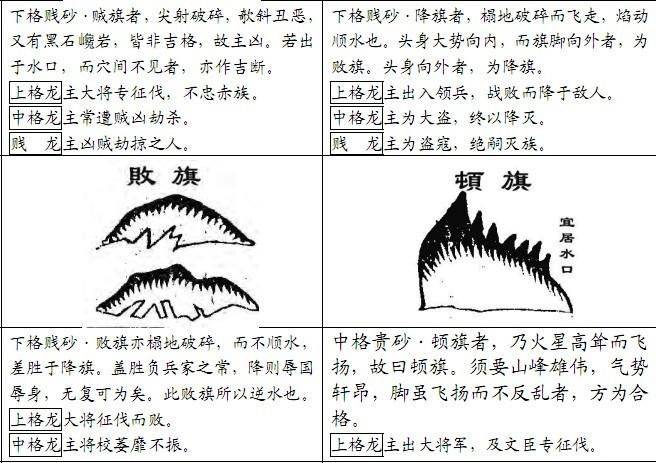 下格贱砂·贼旗者，尖射破碎，欹斜丑恶，
又有黑石巉岩，皆非吉格，故主凶。若出
于水口，而穴间不见者，亦作吉断。
上格龙主大将专征伐，不忠赤族。
中格龙主常遭贼凶劫杀。
贱　龙主凶贼劫掠之人。
下格贱砂·降旗者，榻地破碎而飞走，焰动
顺水也。头身大势向内，而旗脚向外者，为
败旗。头身向外者，为降旗。
上格龙主出入领兵，战败而降于敌人。
中格龙主为大盗，终以降灭。
贱　龙主为盗寇，绝嗣灭族。
敗旗
頓旗
宜居水口
下格贱砂·败旗亦榻地破碎，而不顺水，
差胜于降旗。盖胜负兵家之常，降则辱国
辱身，无复可为矣。此败旗所以逆水也。
上格龙大将征伐而败。
中格龙主将校萎靡不振。
中格贵砂·顿旗者，乃火星高耸而飞
扬，故曰顿旗。须要山峰雄伟，气势
轩昂，脚虽飞扬而不反乱者，方为合
格。
上格龙主出大将军，及文臣专征伐。